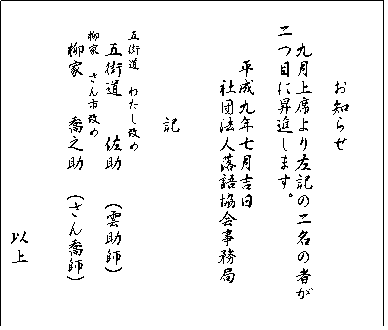 お知らせ
九月上席より左記の二名の者が
二つ目に昇進します。
平成九年七月吉日
社団法人落語協会事務局
記
五街道 わたし改め
五街道 佐助 (雲助師)
柳家 さん市改め
柳家 喬之助 (さん喬師)
以上